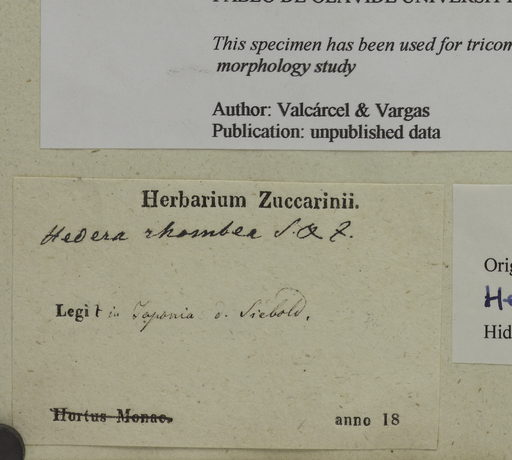 PABLO DE OLAVIDE UNIVERSIT
This specimen has been used for tricom
morphology study
Author: Valcárcel & Vargas
Publication: unpublished data
Herbarium Zuccarinii.
Hedera rhombea S. & Z.
Legit in Japonia v. Siebold.
Hortus Monac.
anno 18
Orig
He
Hid